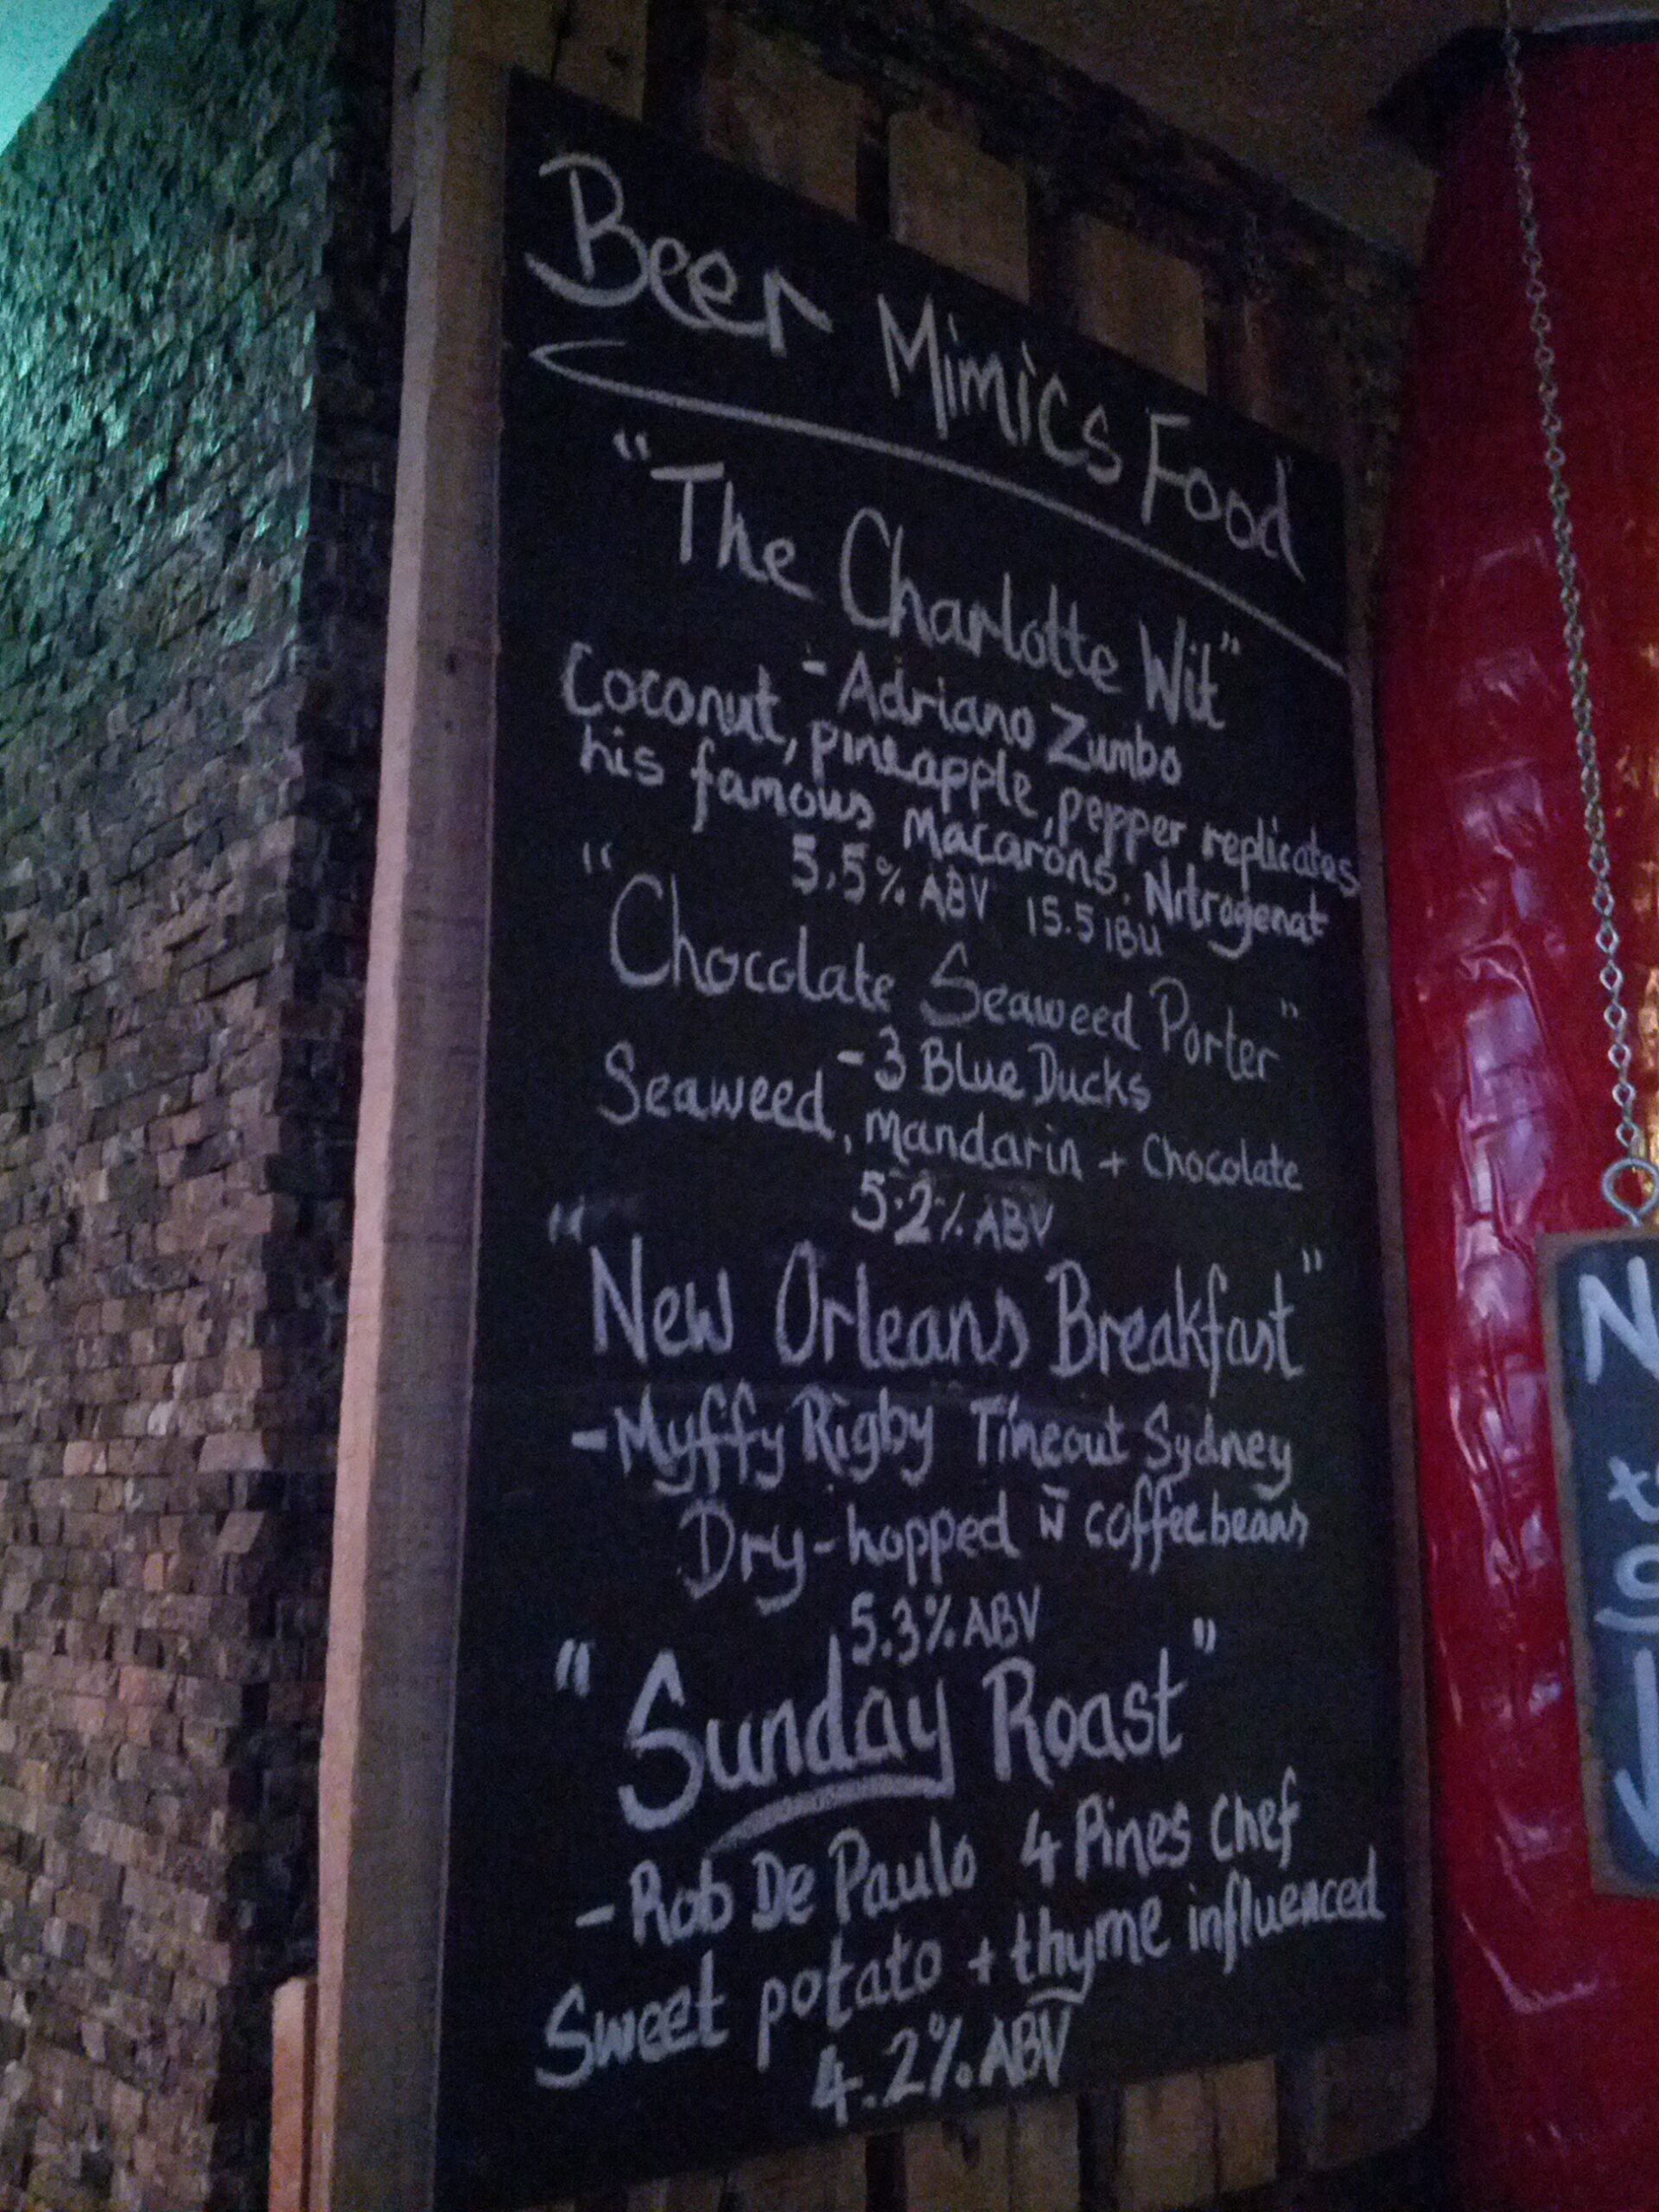 Beer Mimics Food
"The Charlotte Wit"
- Adriano Zumbo
Coconut, pineapple, pepper replicates
his famous Macarons. Nitrogenat
5.5% ABV 15.5 IBU
"Chocolate Seaweed Porter"
- 3 Blue Ducks
Seaweed, mandarin + Chocolate
5.2% ABV
"New Orleans Breakfast"
- Myffy Rigby Timeout Sydney
Dry-hopped w̄ coffee beans
5.3% ABV
"Sunday Roast"
- Rob De Paulo 4 Pines Chef
Sweet potato + thyme influenced
4.2% ABV